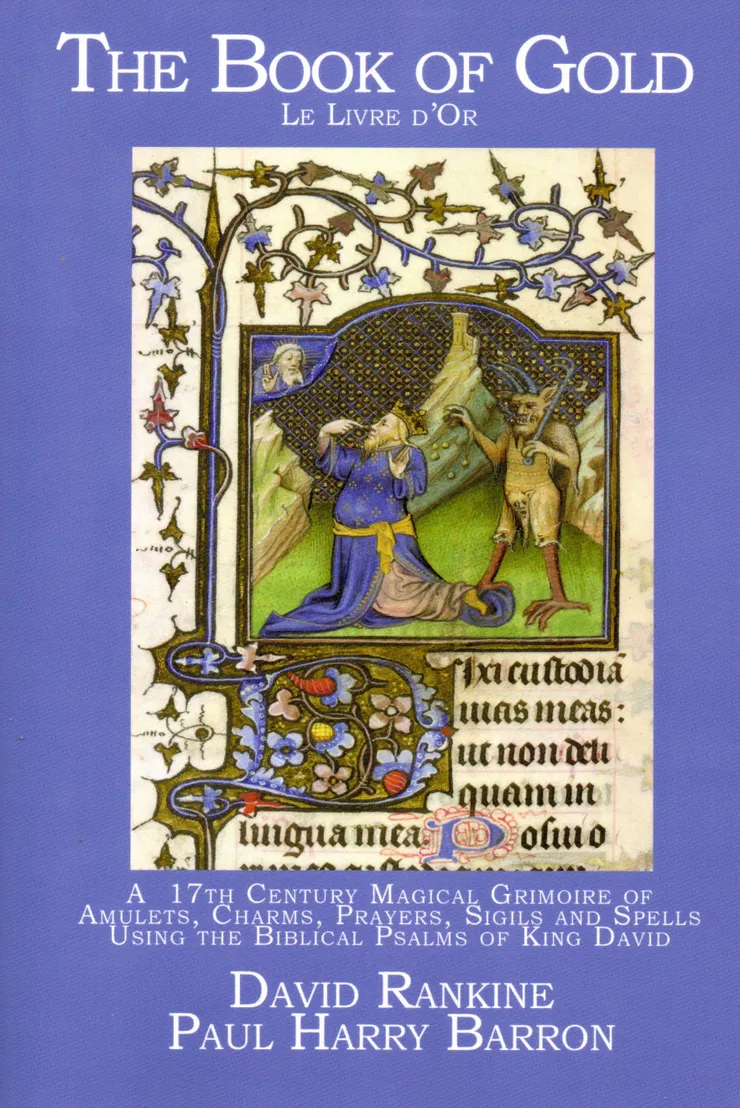 THE BOOK OF GOLD
LE LIVRE D'OR
ixi custodiã
uias meas:
ut non deli
quam in
lingua mea. Posui o
A 17TH CENTURY MAGICAL GRIMOIRE OF
AMULETS, CHARMS, PRAYERS, SIGILS AND SPELLS
USING THE BIBLICAL PSALMS OF KING DAVID
DAVID RANKINE
PAUL HARRY BARRON